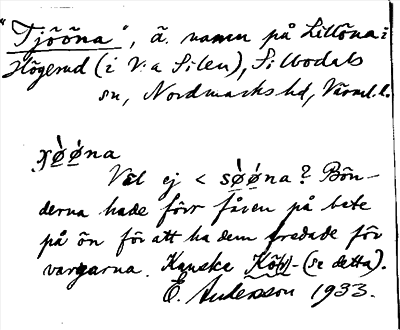 "Tjööna", ä. namn på Lillöna i
Högerud (i V:a Silen), Silbodals
sn, Nordmarks hd, Värml. l.
x̣ø̀ǿna
Väl ej < sø̀ǿna? Bön-
derna hade förr fåren på bete
på ön för att ha dem fredade för
vargarna. Kanske Kö(l)- (se detta).
E. Andersson 1933.